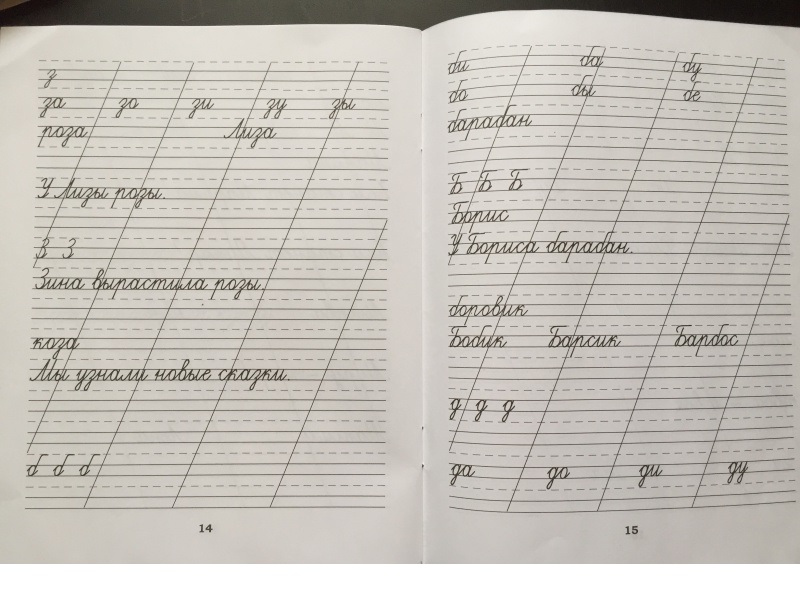 з
за зо зи зу зы
роза Лиза
У Лизы розы.
З З
Зина вырастила розы.
коза
Мы узнали новые сказки.
б б б
14
би ба бу
бо бы бе
барабан
Б Б Б
Борис
У Бориса барабан.
боровик
Бобик Барсик Барбос
д д д
да до ди ду
15